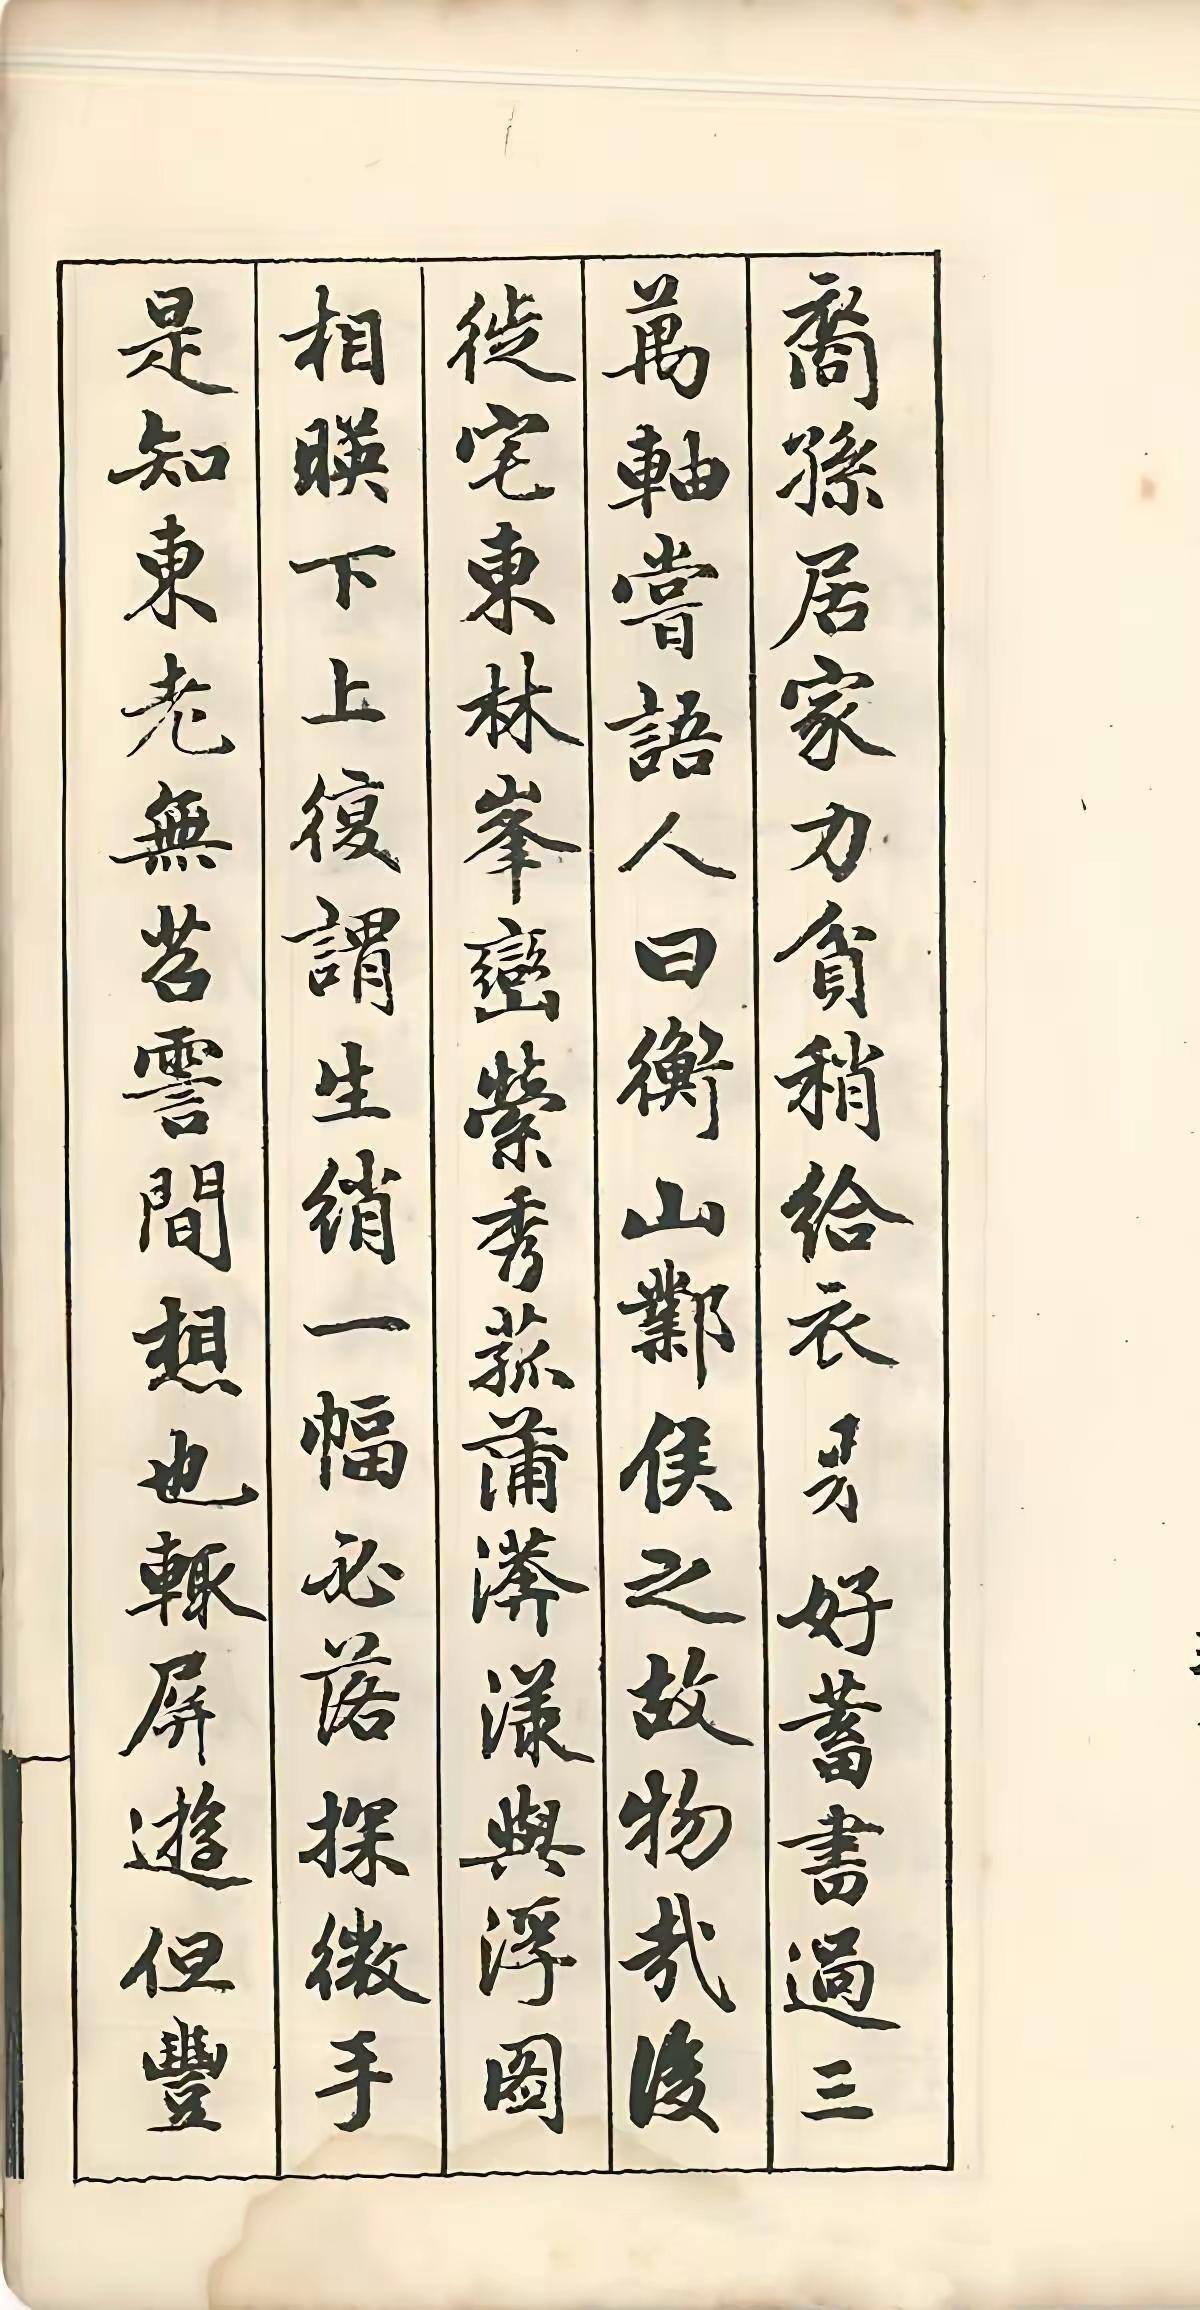 裔孫居家力貧稍給衣易好蓄書過三
萬軸嘗語人曰衡山鄴侯之故物哉後
徙宅東林峯巒縈秀菰蒲漭漾與浮圖
相暎下上復謂生綃一幅必落探微手
是知東老無苕霅間想也輒屏遊但豐